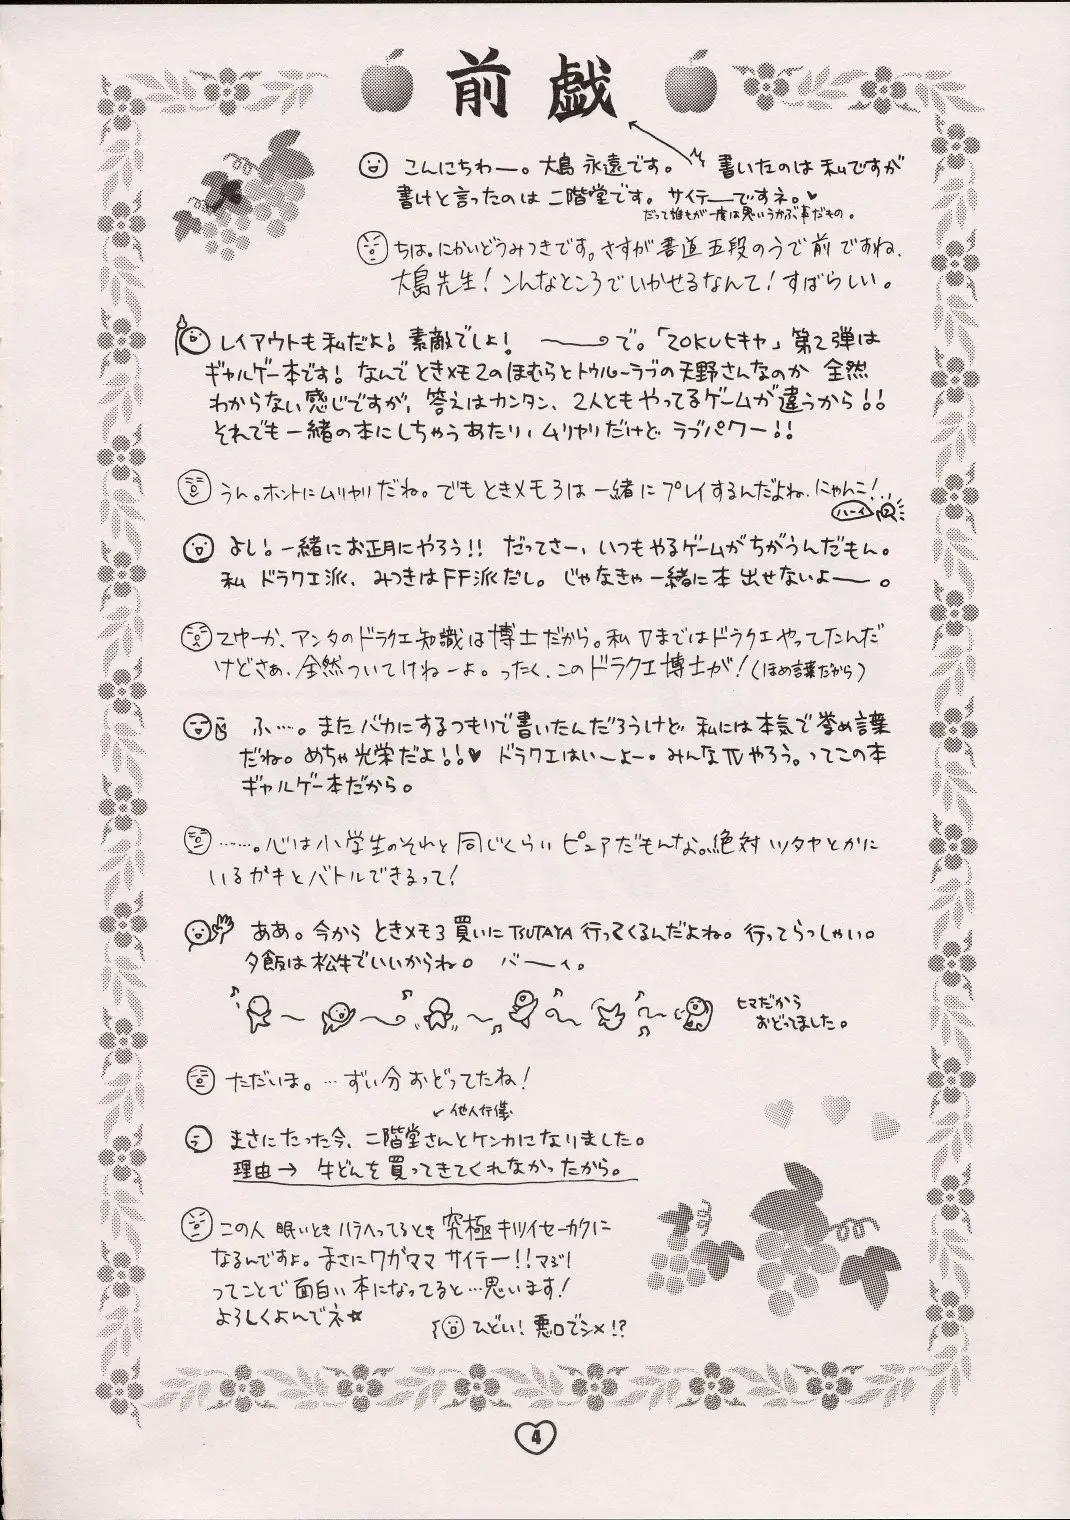 前戯
こんにちわー。大島 永遠です。 書いたのは 私ですが
書けと言ったのは 二階堂です。サイテーですネ。♥
だって誰もが一度は思いうかぶ事だもの。
ちは。にかいどうみつきです。さすが書道五段のうで前ですね、
大島先生!こんなところでいかせるなんて!すばらしい。
レイアウトも私だよ!素敵でしょ! 〜で。「20KUヒキャ」第2弾は
ギャルゲー本です!なんで ときメモ2のほむらとトゥルーラブの天野さんなのか 全然
わからない感じですが、答えはカンタン、2人ともやってるゲームが違うから!!
それでも一緒の本にしちゃうあたり、ムリヤリだけど ラブパワー!!
うん。ホントにムリヤリだね。でも ときメモ3は 一緒に プレイするんだよね、にゃんこ!
ハーイ
よし!一緒にお正月にやろう!! だってさー、いつもやるゲームがちがうんだもん。
私 ドラクエ派、みつきはFF派だし。じゃなきゃ一緒に本 出せないよー。
てゆーか、アンタのドラクエ知識は博士だから。私 Vまではドラクエやってたんだ
けどさぁ、全然ついてけねーよ。ったく、このドラクエ博士が!(ほめ言葉だから)
ふ…。またバカにするつもりで書いたんだろうけど 私には本気で誉め言葉
だね。めちゃ光栄だよ!!♥ ドラクエはいーよー。みんなⅣやろう。ってこの本
ギャルゲー本だから。
……。心は小学生のそれと同じくらい ピュアだもんな。絶対 ツタヤとかに
いるガキとバトルできるって!
ああ。今から ときメモ3買いに TSUTAYA 行ってくるんだよね。行ってらっしゃい。
夕飯は松牛でいいからね。 バーイ。
ヒマだから
おどってました。
ただいま。…ずい分おどってたね!
↙他人行儀
まさにたった今、二階堂さんとケンカになりました。
理由→ 牛どんを買ってきてくれなかったから。
この人 眠いとき ハラへってるとき 究極 キツイセーカクに
なるんですよ。まさにワガママ サイテー!!マジ!
ってことで面白い本になってると…思います!
よろしくよんでネ☆
ひどい!悪口でシメ!?
4